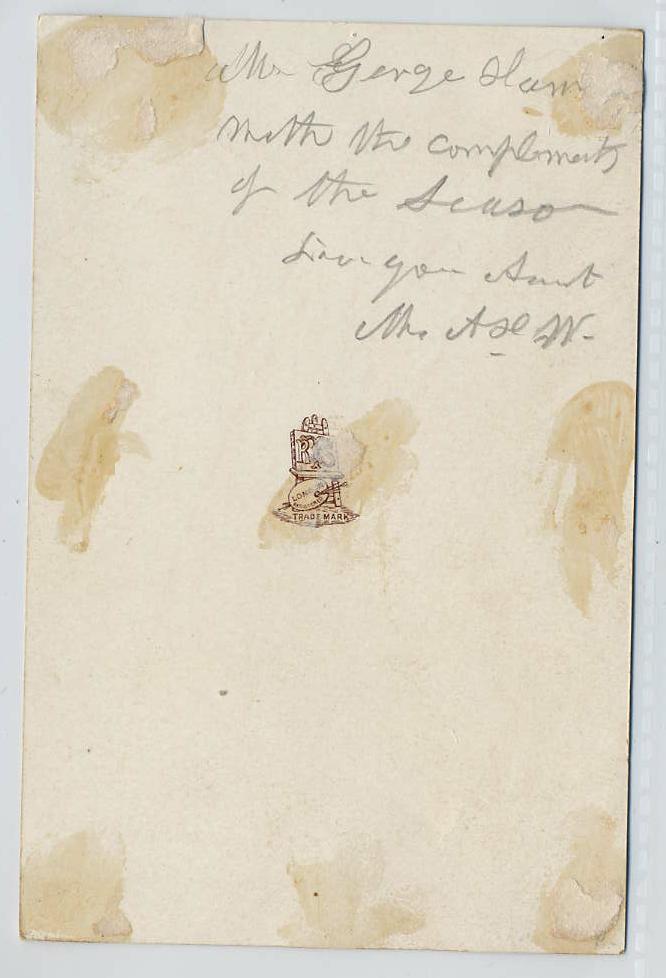 Mr George Ham
With the complements
of the Season
from you Aunt
Mrs A H W.
R T S
LONDON
TRADE MARK